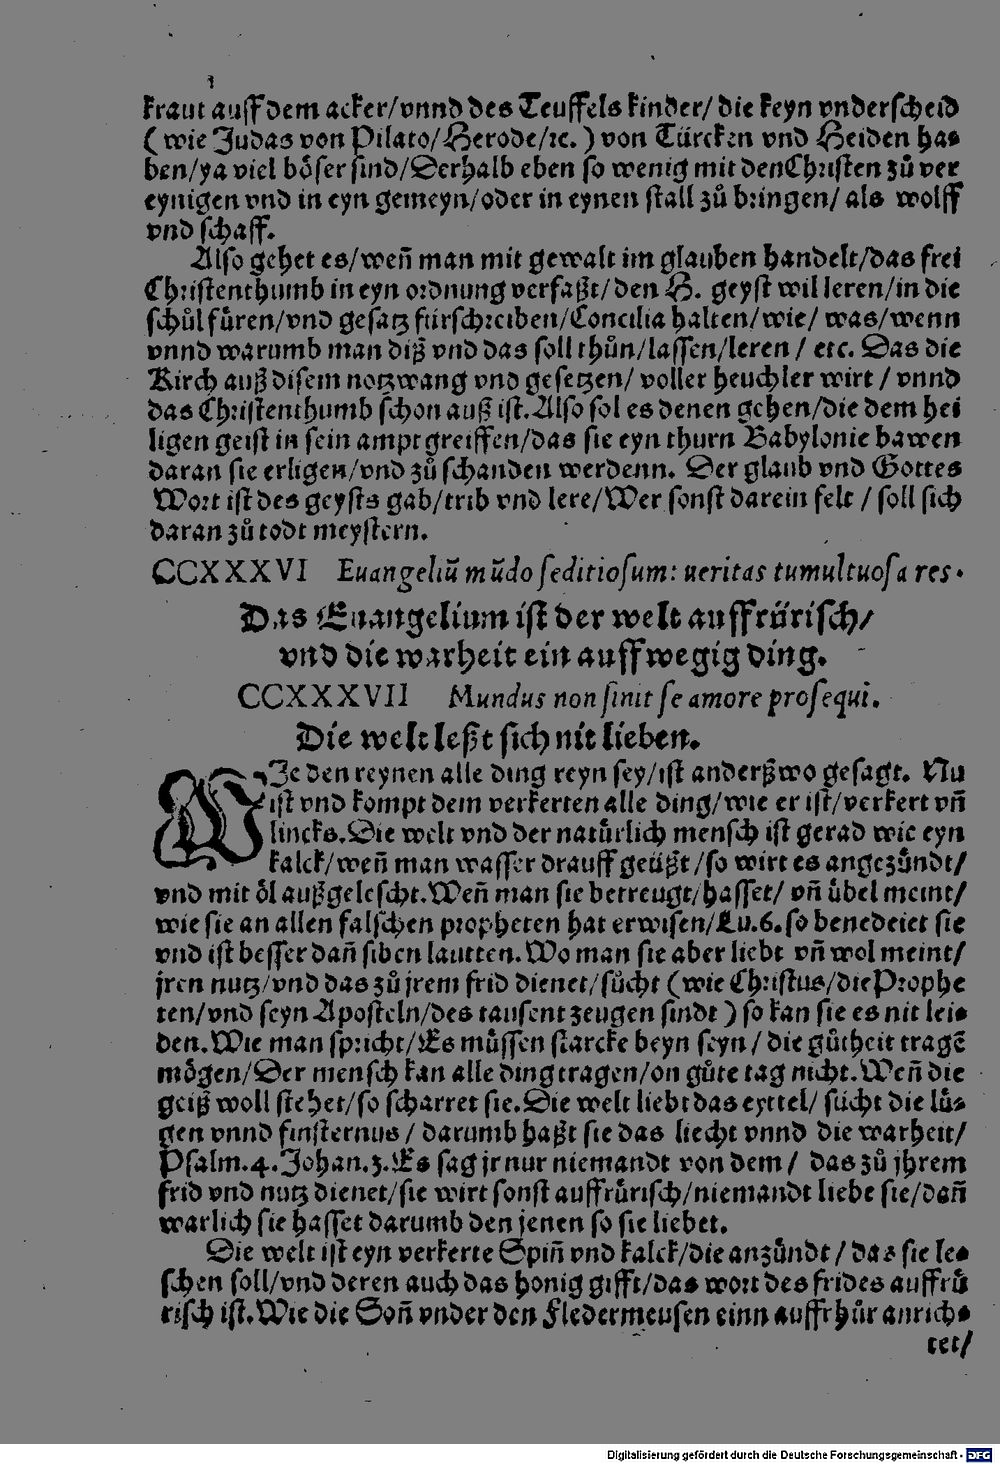 kraut auff dem acker/vnnd des Teuffels kinder/die keyn vnderscheid
(wie Judas von Pilato/Herode/ꝛc.) von Türcken vnd Heiden ha-
ben/ya viel böser sind/Derhalb eben so wenig mit den Christen zů ver
eynigen vnd in eyn gemeyn/oder in eynen stall zů bringen/als wolff
vnd schaff.
Also gehet es/weñ man mit gewalt im glauben handelt/das frei
Christenthumb in eyn ordnung verfaßt/den H. geyst wil leren/in die
schůl füren/vnd gesatz fürschreiben/Concilia halten/wie/was/wenn
vnnd warumb man diß vnd das soll thůn/lassen/leren/etc. Das die
Kirch auß disem notzwang vnd gesetzen/voller heuchler wirt/vnnd
das Christenthumb schon auß ist. Also sol es denen gehen/die dem hei
ligen geist in sein ampt greiffen/das sie eyn thurn Babylonie bawen
daran sie erligen/vnd zů schanden werdenn. Der glaub vnd Gottes
Wort ist des geysts gab/trib vnd lere/Wer sonst darein felt/soll sich
daran zů todt meystern.
CCXXXVI Euangeliũ mũdo seditiosum: ueritas tumultuosa res.
Das Euangelium ist der welt auffrürisch/
vnd die warheit ein auffwegig ding.
CCXXXVII Mundus non sinit se amore prosequi.
Die welt leßt sich nit lieben.
WJe den reynen alle ding reyn sey/ist anderßwo gesagt. Nu
ist vnd kompt dem verkerten alle ding/wie er ist/verkert vñ
lincks. Die welt vnd der natürlich mensch ist gerad wie eyn
kalck/weñ man wasser drauff geüßt/so wirt es angezündt/
vnd mit öl außgelescht. Weñ man sie betreugt/hasset/vñ übel meint/
wie sie an allen falschen propheten hat erwisen/Lu.6. so benedeiet sie
vnd ist besser dañ siben lautten. Wo man sie aber liebt vñ wol meint/
jren nutz/vnd das zů jrem frid dienet/sůcht (wie Christus/die Prophe
ten/vnd seyn Aposteln/des tausent zeugen sindt) so kan sie es nit lei-
den. Wie man spricht/Es müssen starcke beyn seyn/die gůtheit tragẽ
mögen/Der mensch kan alle ding tragen/on gůte tag nicht. Weñ die
geiß woll stehet/so scharret sie. Die welt liebt das eyttel/sücht die lü-
gen vnnd finsternus/darumb haßt sie das liecht vnnd die warheit/
Psalm.4. Johan.3. Es sag jr nur niemandt von dem/das zů jhrem
frid vnd nutz dienet/sie wirt sonst auffrürisch/niemandt liebe sie/dañ
warlich sie hasset darumb den jenen so sie liebet.
Die welt ist eyn verkerte Spiñ vnd kalck/die anzündt/das sie le-
schen soll/vnd deren auch das honig gifft/das wort des frides auffrü
risch ist. Wie die Soñ vnder den Fledermeusen einn auffrhůr anrich-
tet/
Digitalisierung gefördert durch die Deutsche Forschungsgemeinschaft - DFG